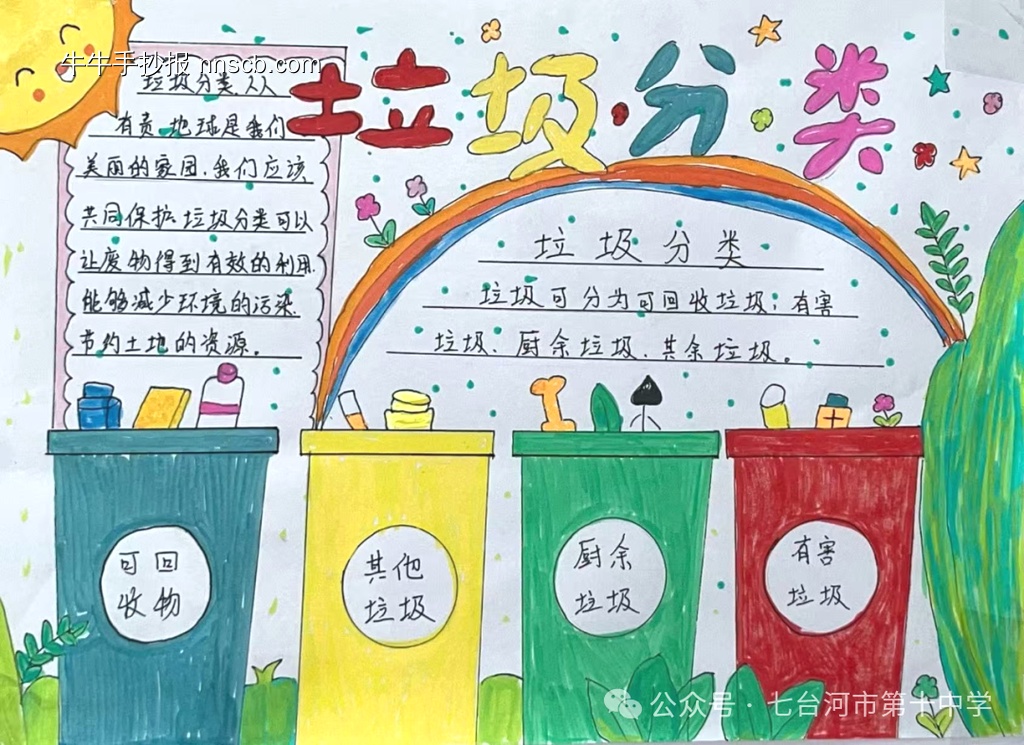 牛牛手抄报 nnscb.com
垃圾分类
垃圾分类人人
有责 地球是我们
美丽的家园.我们应该
共同保护.垃圾分类可以
让废物得到有效的利用.
能够减少环境的污染.
节约土地的资源。
垃圾分类
垃圾可分为可回收垃圾;有害
垃圾、厨余垃圾、其余垃圾。
可回
收物
其他
垃圾
厨余
垃圾
有害
垃圾
公众号·七台河市第十中学